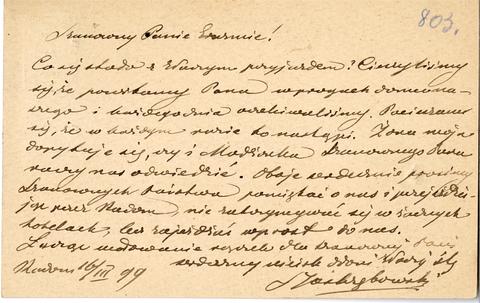 803.
Szanowny Panie Erazmie!
Co się stało z Waszym przyjazdem? Cieszyliśmy
się, że powitamy Pana w progach domu na-
szego i każdego dnia oczekiwaliśmy. Pocieszam
się, że w każdym razie to nastąpi. Żona moja
dopytuje się, czy i Małżonka Szanownego Pana
raczy nas odwiedzić. Oboje serdecznie prosimy
Szanownych Państwa pamiętać o nas i przejeżdża-
jąc przez Radom, nie zatrzymywać się w żadnych
hotelach, lecz zajeżdżać wprost do nas.
Łącząc ucałowanie rączek dla Szanownej Pani
serdeczny uścisk dłoni Waszej ślę
Radom 16/III 99